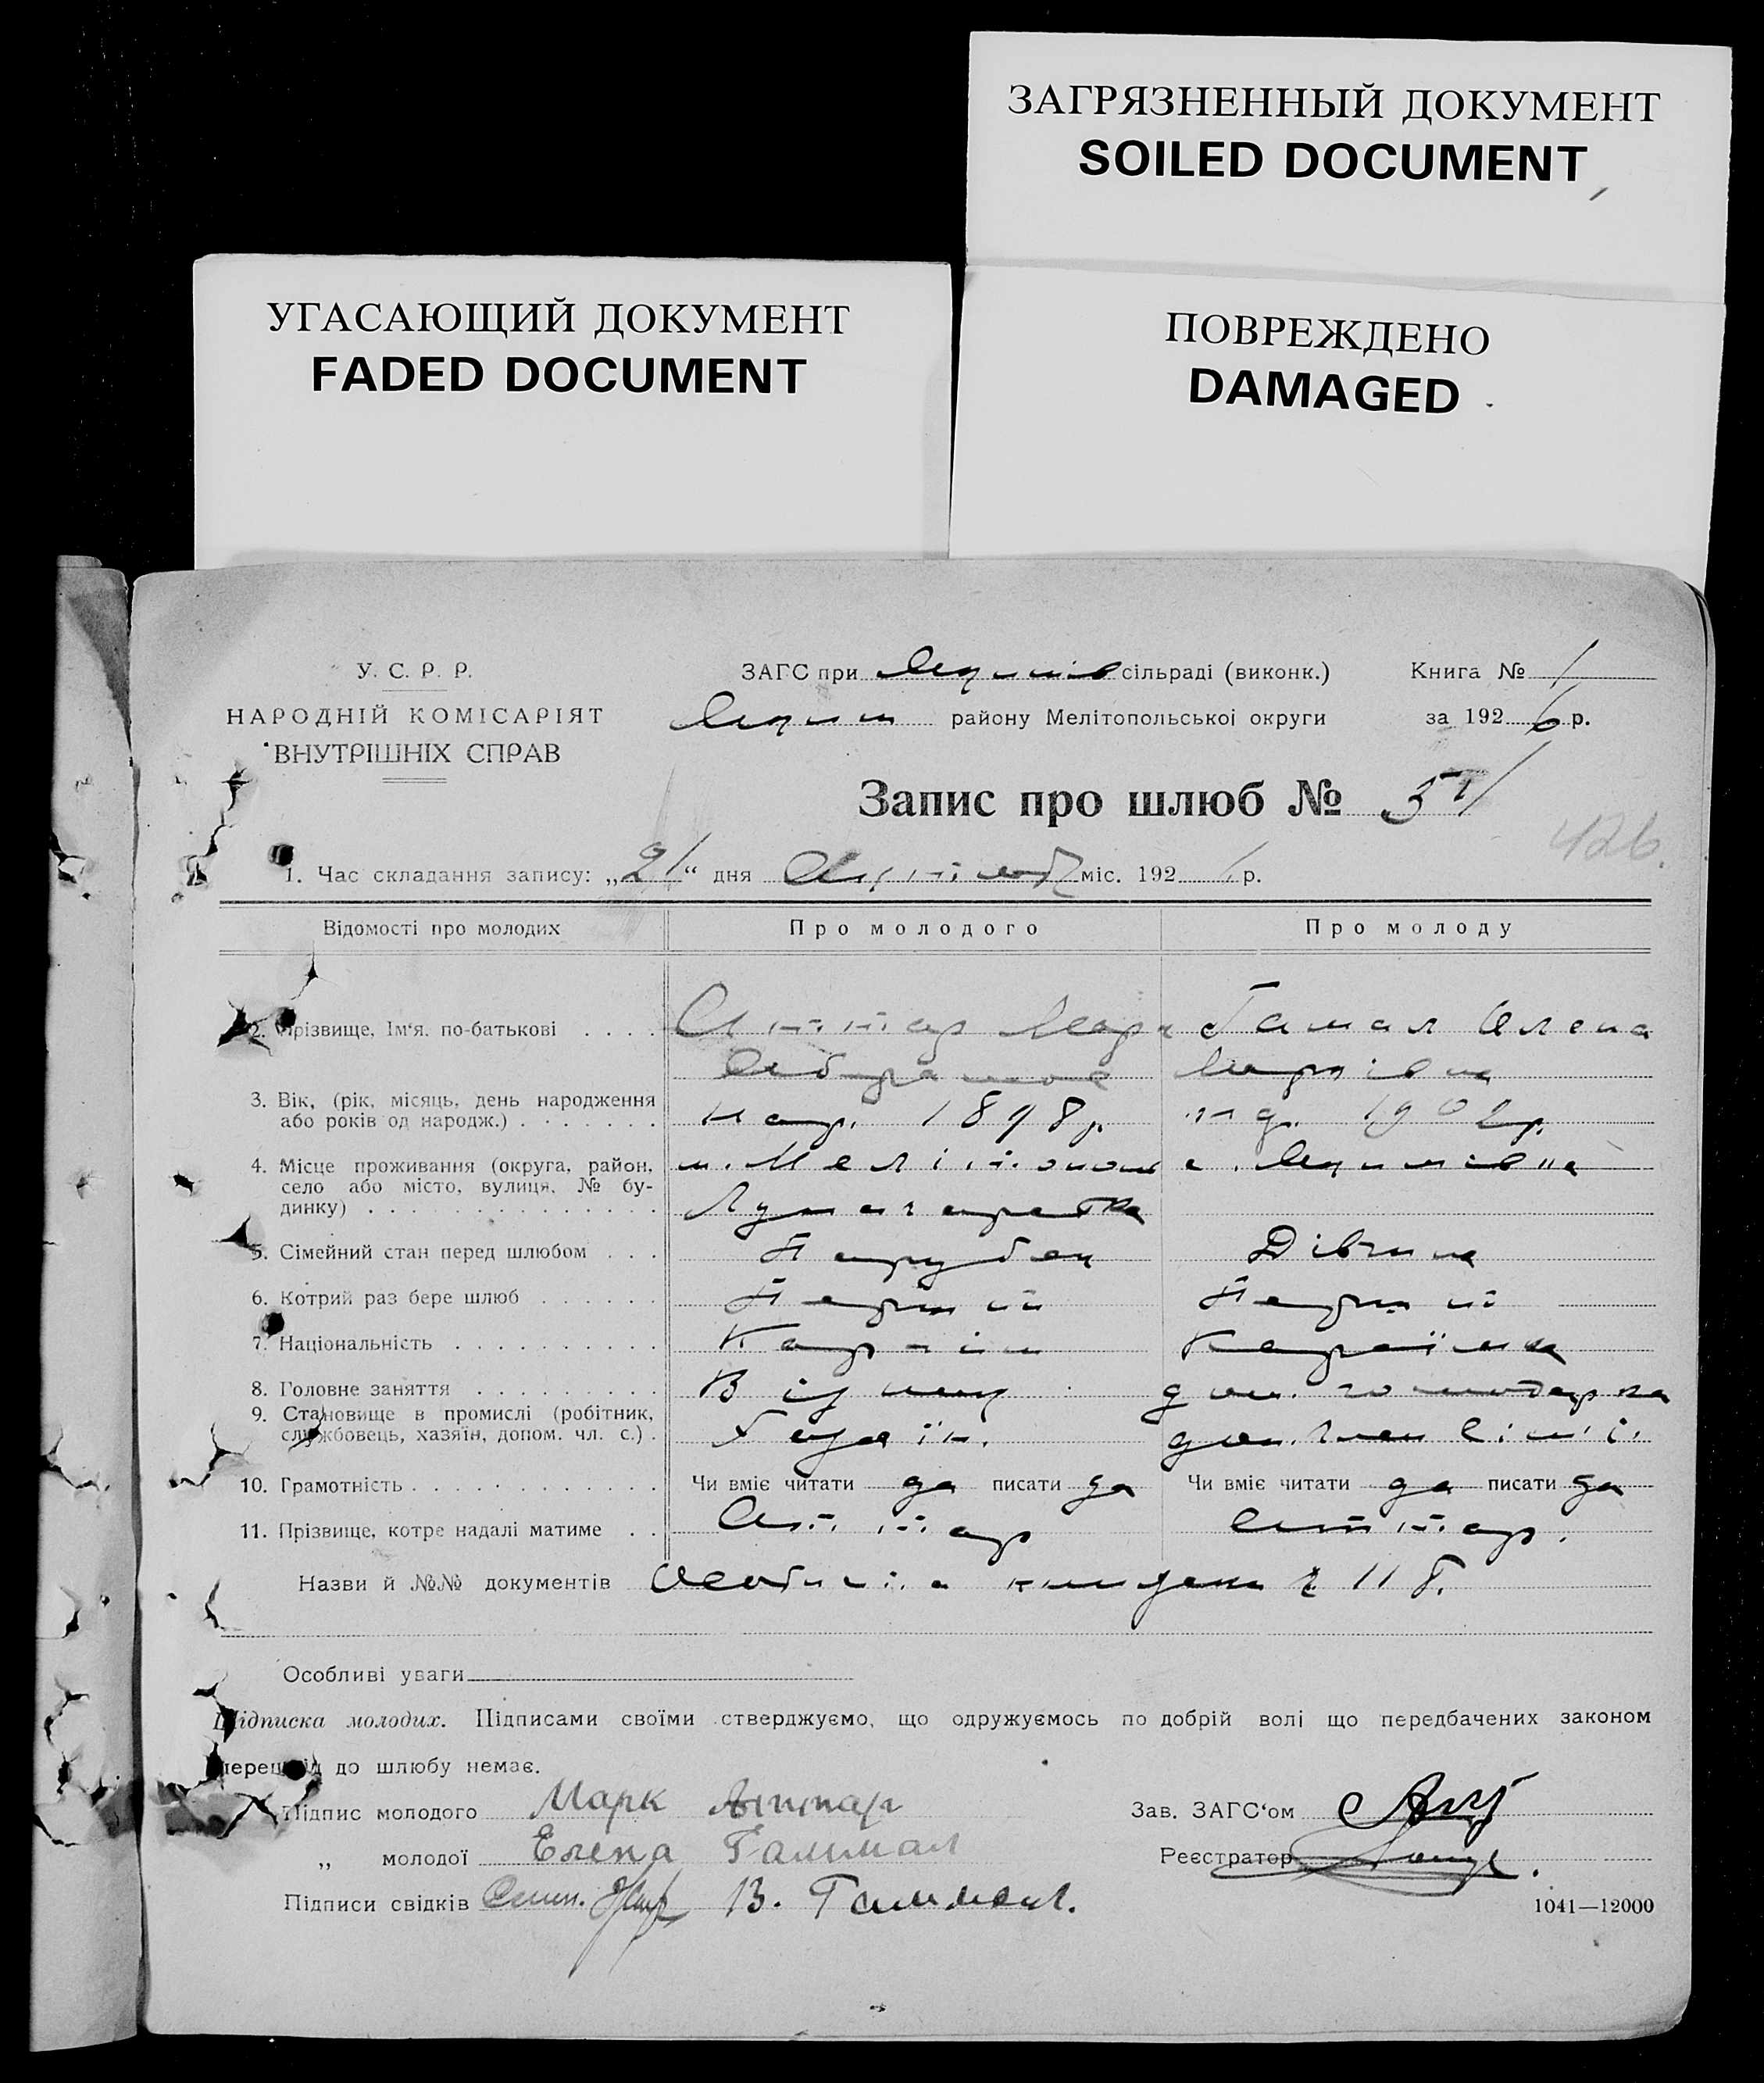 ЗАГРЯЗНЕННЫЙ ДОКУМЕНТ
SOILED DOCUMENT
УГАСАЮЩИЙ ДОКУМЕНТ
FADED DOCUMENT
ПОВРЕЖДЕНО
DAMAGED
У. С. Р. Р.
НАРОДНІЙ КОМІСАРІЯТ
ВНУТРІШНІХ СПРАВ
ЗАГС при сільраді (виконк.)
району Мелітопольської округи
Книга № 1
за 1926 р.
Запис про шлюб №
426.
1. Час складання запису: „21“ дня міс. 192 р.
Відомості про молодих Про молодого Про молоду
2. Прізвище, Ім‘я, по-батькові Аттар Марк Гамал Олена
Абрамов Марківна
3. Вік, (рік, місяць, день народження
або років од народж.) нар. 1898 р. нар. 1902 р.
4. Місце проживання (округа, район, м. Мелітополь с.
село або місто, вулиця, № бу-
динку)
5. Сімейний стан перед шлюбом Парубок Дівчина
6. Котрий раз бере шлюб Перший Перший
7. Національність Караїм Караїмка
8. Головне заняття дом. господарка
9. Становище в промислі (робітник,
службовець, хазяїн, допом. чл. с.) Хазяїн. доп. член сім'ї.
10. Грамотність Чи вміє читати да писати да Чи вміє читати да писати да
11. Прізвище, котре надалі матиме Аттар Аттар.
Назви й №№ документів Особиста
Особливі уваги
Підписка молодих. Підписами своїми стверджуємо, що одружуємось по добрій волі що передбачених законом
перешкід до шлюбу немає.
Підпис молодого Марк Аттар Зав. ЗАГС‘ом
„ молодої Елена Гаммал Реєстратор
Підписи свідків В. Гаммал.
1041—12000